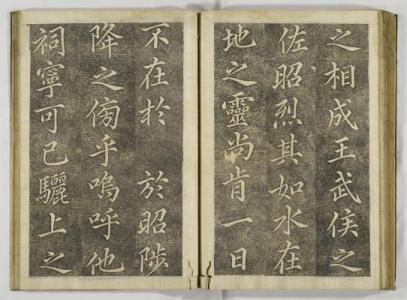 之相成王武侯之
佐昭烈其如水在
地之靈尚肯一日
不在於 於昭陟
降之傍乎嗚呼他
祠寧可已驪上之